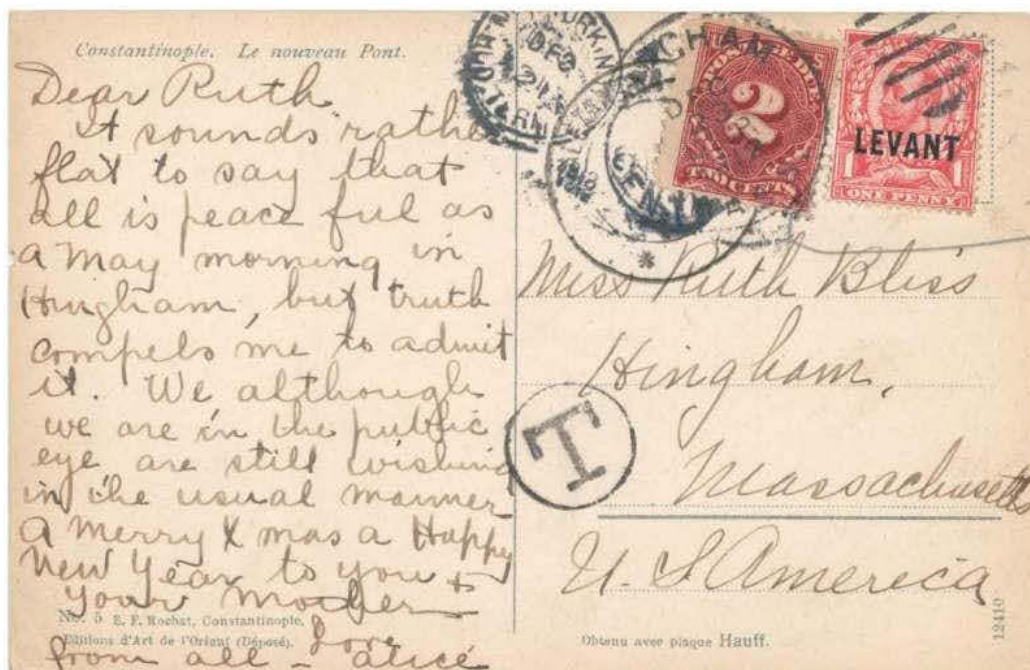 Constantinople. Le nouveau Pont.
Dear Ruth
It sounds rather
flat to say that
all is peace ful as
a May morning in
Hingham, but truth
compels me to admit
it. We although
we are in the public
eye are still wishing
in the usual manner
a Merry Xmas a Happy
New Year to you +
your Mother
Love
from all - Alice
No. 5 E. F. Rochat, Constantinople.
Editions d'Art de l'Orient (Déposé).
HINGHAM
2
TWO CENTS
LEVANT
1
ONE PENNY
Miss Ruth Bliss
Hingham,
Massachusetts
U. S America
T
Obtenu avec plaque Hauff.
12410